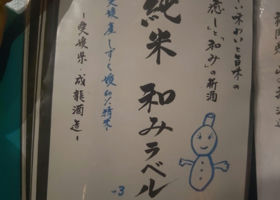 い味わいと旨味の
癒しと和みの新酒
純米 和みラベル
-3
愛媛産しずく媛60%精米
〜愛媛県・成龍酒造〜